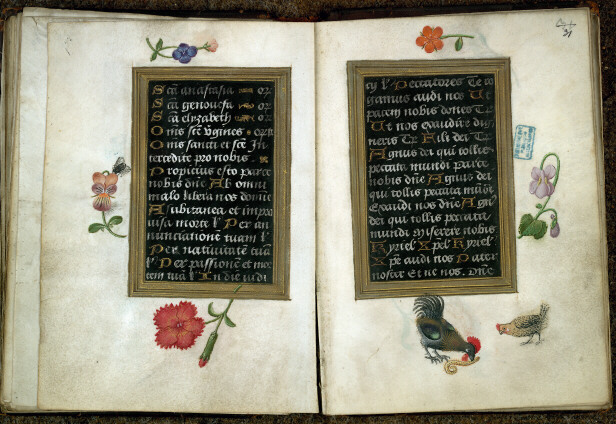 Scā anastasia or
Scā genouefa or
Scā elyzabeth or
Om̄s scē v̄gines orate
Om̄s sancti et scē In
tercedite pro nobis
Propicius esto parce
nobis dn̄e Ab omni
malo libera nos domīe
A subitanea et impro
uisa morte l' Per an
nunciationē tuam l'
Per natiuitatē tuā
l' Per passionē et mor
tem tuā l' In die iudi
cij l' Peccatores Te ro
gamus audi nos Vt
pacem nobis dones Te
Vt nos exaudire dig
neris Te Fili dei Te
Agnus dei qui tollis
peccata mundi parce
nobis dn̄e Agnus dei
qui tollis peccata mūdi
Exaudi nos dn̄e Agn⁹
dei qui tollis peccata
mundi miserere nobis
Kyriel' Xpel' Kyriel'
Xpē audi nos Pater
noster Et ne nos. Dn̄e